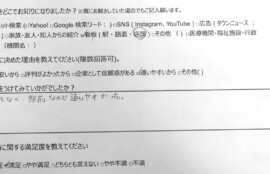 をどこでお知りになりましたか？※既にお勧めしていた場合でもご記入願います。
ット検索（○Yahoo!○Google 検索ワード： ）○SNS（Instagram、YouTube）○広告（タウンニュース：
）○家族・友人・知人からの紹介 ○看板（駅・路面・店頭）○その他（）○医療機関・福祉施設・行政
（機関名： ）
に決めた理由を教えてください（複数回答可）。
安いから ○評判がよかったから ○企業として信頼感がある ○通いやすいから ○その他（
をうけてみていかがでしたか？
駅前なので通いやすかった。
に関する満足度を教えてください
満足 ○やや満足 ○どちらとも言えない ○やや不満 ○不満